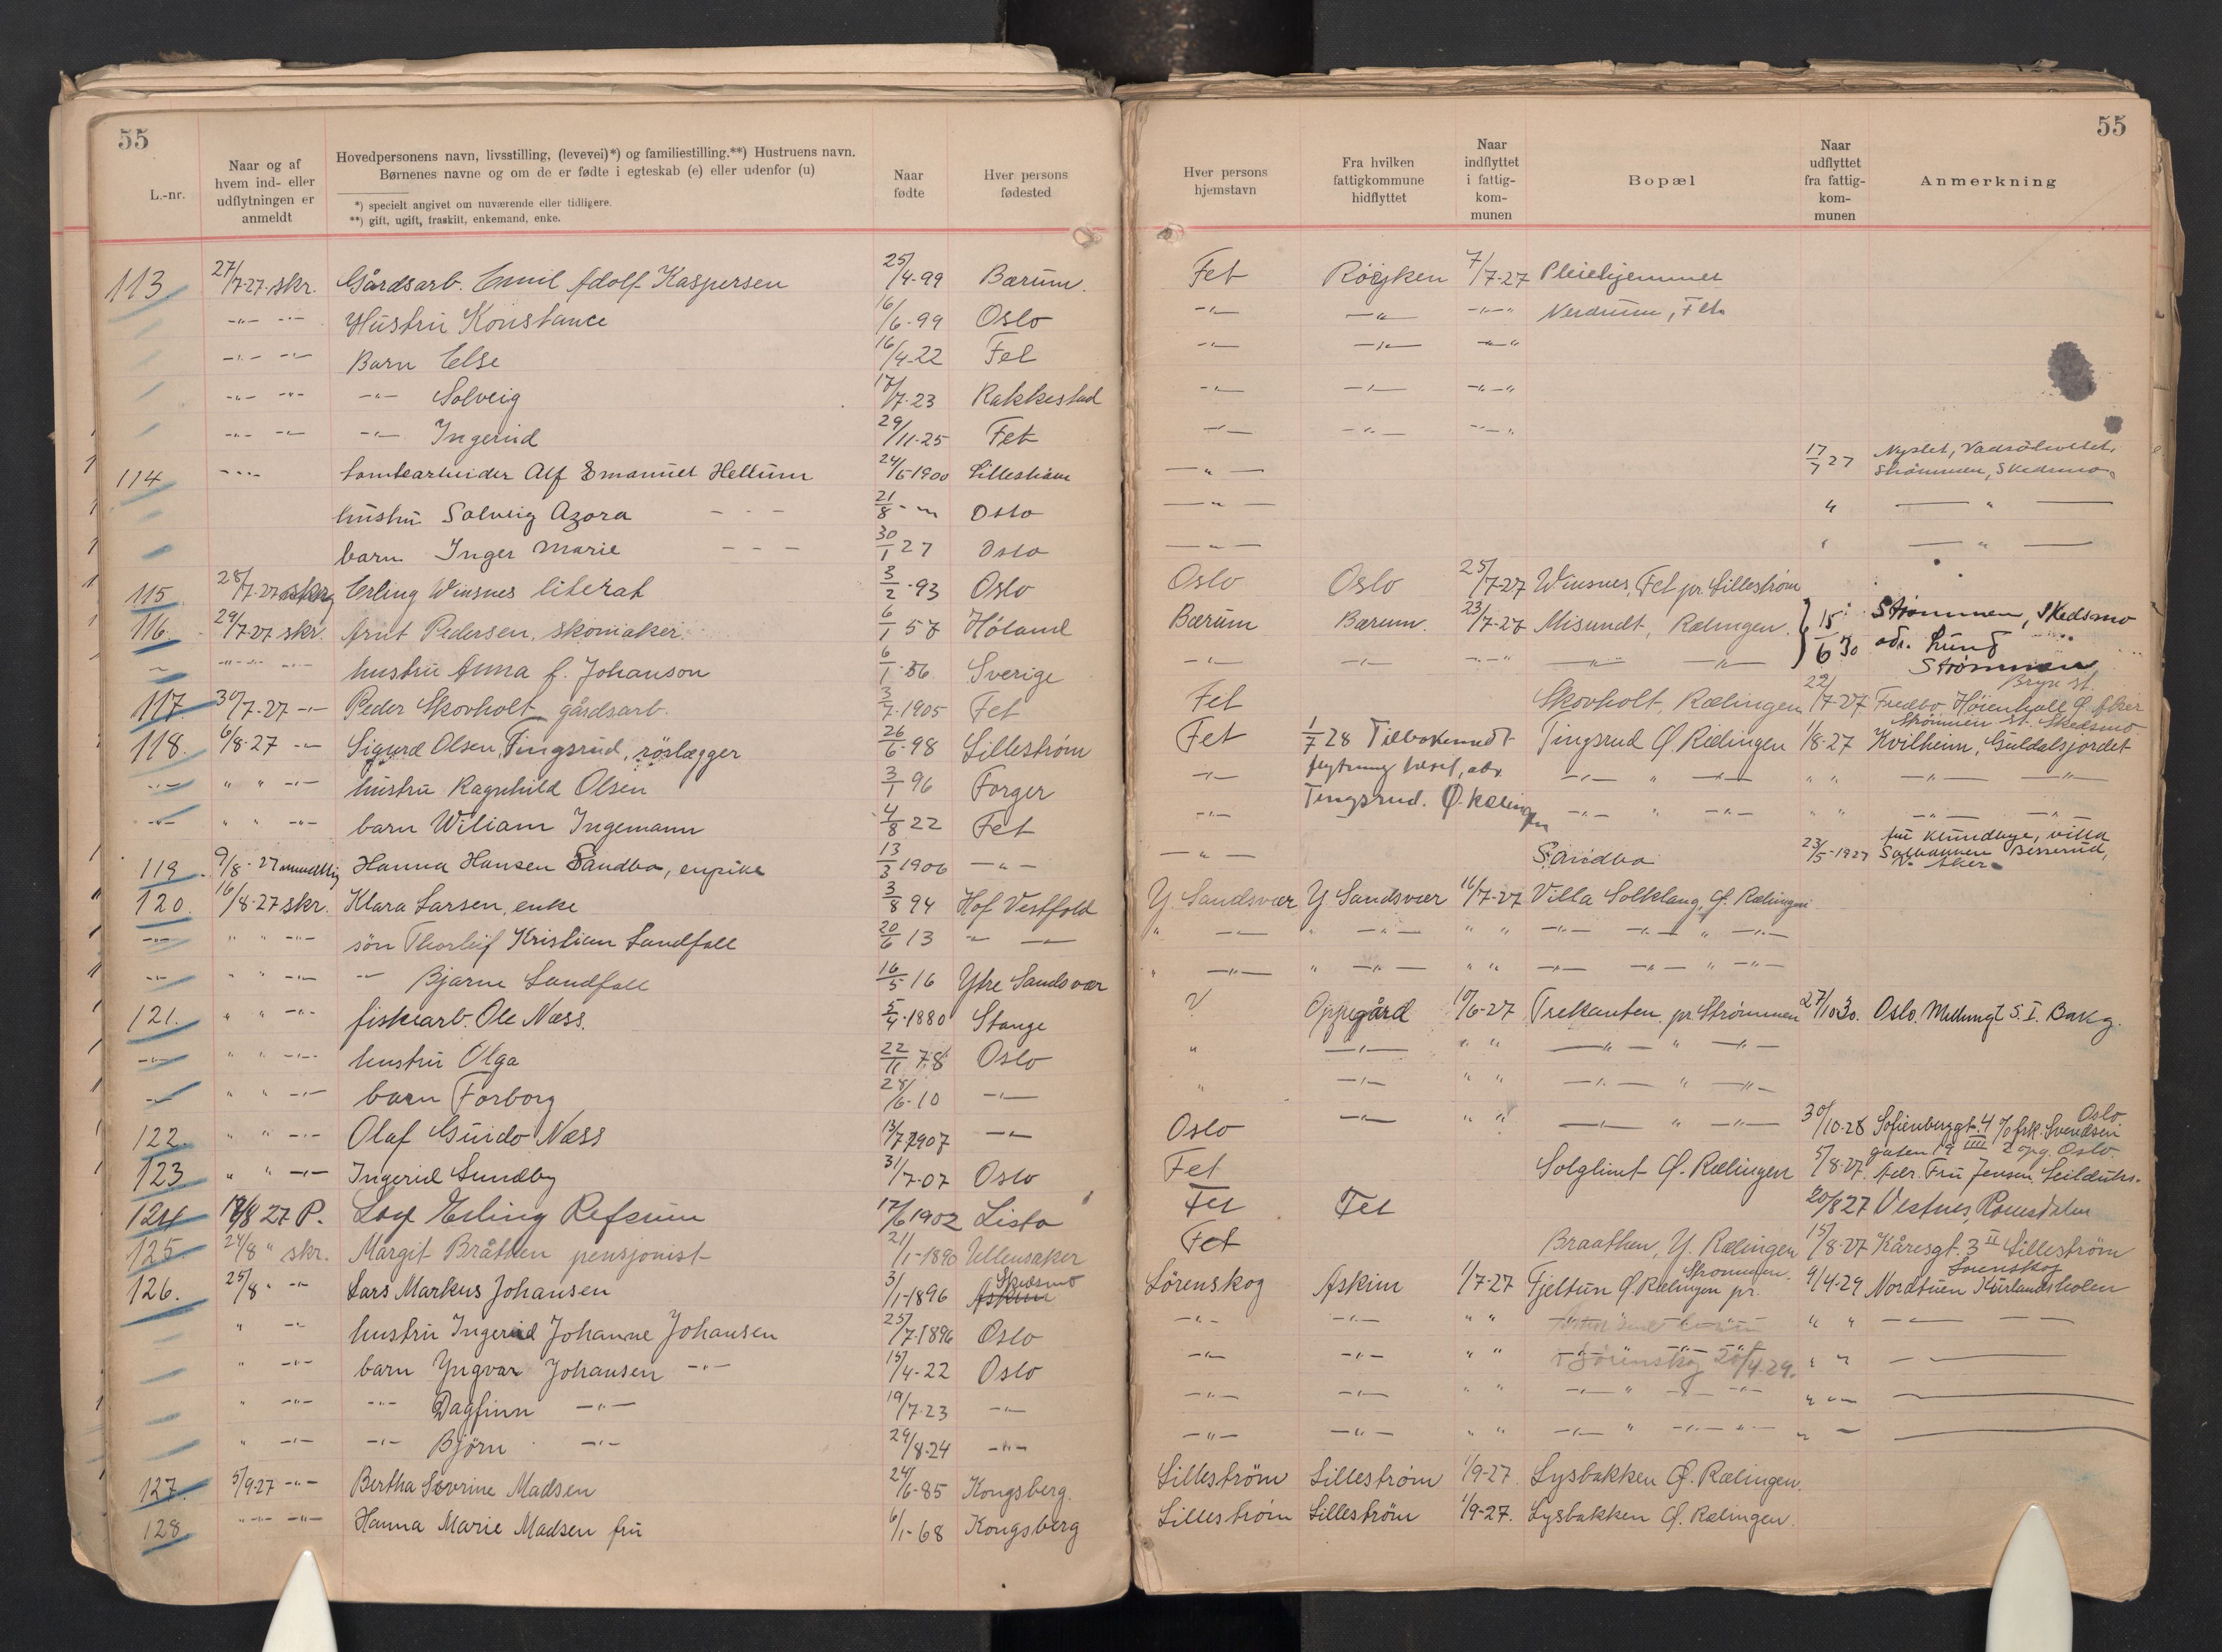 55
55
L.-nr.
Naar og af hvem ind- eller udflytningen er anmeldt
Hovedpersonens navn, livsstilling, (levevei)*) og familiestilling.**) Hustruens navn.
Børnenes navne og om de er fødte i egteskab (e) eller udenfor (u)
*) specielt angivet om nuværende eller tidligere.
**) gift, ugift, fraskilt, enkemand, enke.
Naar fødte
Hver persons fødested
Hver persons hjemstavn
Fra hvilken fattigkommune hidflyttet
Naar indflyttet i fattig-kom-munen
Bopæl
Naar udflyttet fra fattig-kom-munen
Anmerkning
113 27/7-27 skr. Gårdsarb. Emil Adolf Kaspersen 25/4-99 Bærum. Fet Røyken 7/7-27 Pleiehjemmet
-"- -"- Hustru Konstance 16/6-99 Oslo -"- -"- -"-" Nerdrum, Fet
-"- -"- Barn Else 16/4-22 Fet -"- -"- -"-"
-"- -"- -"- Solveig 17/7-23 Rakkestad -"- -"- -"-"
-"- -"- -"- Ingerid 29/11-25 Fet -"- -"- -"-"
114 -"- tomtearbeider Alf Emanuel Hellum 24/5 1900 Lillestrøm -"- 17/7 27 Nyslet,
Strømmen, Skedsmo
hustru Solveig Azora - - - 21/8 -"- Oslo -"- " -"-
barn Inger Marie - - - 30/1 27 Oslo -"- " -"-
115 28/7-27 Erling Winsnes literat 3/2-93 Oslo Oslo Oslo 25/7-27 Winsnes, Fet pr. Lillestrøm
116. 29/7-27 skr. Arnt Pedersen, skomaker 6/1 57 Høland Bærum Bærum. 23/7-27 Misundt, Rælingen. 15/6 30 Strømmen, Skedsmo
adr. Lund
-"- -"- hustru Anna f. Johanson 6/1-56 Sverige -"- -"- -"-" -"- -"- Strømmen
Bryn st.
117. 30/7-27 -"- Peder Skovholt gårdsarb. 3/7-1905 Fet Fet Skovholt, Rælingen 22/7-27 Fredbo Høienhall Ø. Aker
Strømmen st. Skedsmo
118. 6/8-27 -"- Sigurd Olsen, Tingsrud, rørlægger 26/6-98 Lillestrøm Fet 1/7 28 Tilbakemeldt Tingsrud Ø. Rælingen 1/8-27 Kvilheim, Guldalsjordet
" " -"- hustru Ragnhild Olsen 3/1 96 Torger -"- flytning -"- " -"- " " -"- -"-
" " -"- barn Wiliam Ingemann 4/8 22 Fet -"- Tingsrud. Ø. Rælingen -"- " -"- " " -"- -"-
fru Klundbye, villa
119. 9/8-27 mundtlig Hanna Hansen Sandbo, enpike 13/3 1906 -"- -"- Sandbo 23/5-1927 Solbakken Besserud,
V. Aker
120. 16/8-27 skr. Klara Larsen, enke 3/8 94 Hof Vestfold Y. Sandsvær Y. Sandsvær 16/7-27 Villa Solklang, Ø. Rælingen
" " -"- søn Thorleif Kristian Sundfall 20/6 13 -"- -"- " -"- " -"- " " -"- -"- " -"-
" " -"- -"- Bjarne Sundfall 16/5 16 Ytre Sandsvær " -"- " -"- " " -"- -"- " -"-
121. " " -"- fiskearb. Ole Næss. 5/4-1880 Stange V Oppegård 10/6-27 Trekanten pr Strømmen 27/10 30. Oslo. Meltzersgt 5. I. Bakg.
" " -"- hustru Olga 22/11 78 Oslo " -"- " " -"- " -"-
" " -"- barn Torborg 28/6-10 -"- " -"- " " -"- " -"-
122. " " -"- Olaf Guido Næss 13/7 1907 -"- Oslo -"- " " -"- " -"- 30/10-28 Sofienberggt. 4 c/o frk. Svendsen Oslo
123 " " -"- Ingerid Sundby 31/7-07 Oslo Fet Solglimt Ø. Rælingen 5/8-27. Adr. Fru Jensen, Seilduks-
gaten 19 IIII 2 opg. Oslo.
124 19/8 27 P. Leif Erling Refsum 17/6 1902 Lista Fet Fet 20/8 27 Vestnes, Romsdalen
125 24/8 " skr. Margit Bråthen pensjonist 21/1-1890 Ullensaker Fet Braathen, Y. Rælingen 15/8-27 Kåresgt. 3 II Lillestrøm
126. 25/8 " -"- Lars Markus Johansen 3/1-1896 Askim Skedsmo Lørenskog Askim 1/7-27 Fjeltun Ø. Rælingen pr. Strømmen. 9/4-29 Nordtuen Kurlandsholen Lørenskog
" -"- hustru Ingerid Johanne Johansen 25/7-1896 Oslo -"- -"- " " " " -"- -"-
" -"- barn Yngvar Johansen -"- 15/4-22 Oslo -"- -"- " " Lørenskog 20/4-29. " "
" -"- -"- Dagfinn -"- 19/7-23 -"- -"- -"- " " -"- " -"- -"- " "
" -"- -"- Bjørn -"- 29/8-24 -"- -"- -"- " " -"- " -"- " -"- "
127. 5/9-27 -"- Bertha Sevrine Madsen 24/6-85 Kongsberg. Lillestrøm Lillestrøm 1/9-27. Lysbakken Ø. Rælingen.
128 -"- -"- Hanna Marie Madsen fru 6/1-68 Kongsberg Lillestrøm Lillestrøm 1/9-27. Lysbakken Ø. Rælingen.